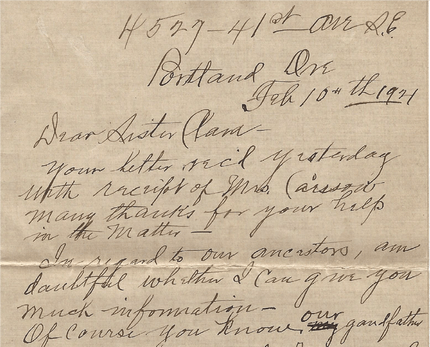 4527-41st Ave S.E.
Portland Ore
Feb 10th 1921
Dear Sister Clara-
Your letter rec'd yesterday
with receipt of Mrs.
many thanks for your help
in the Matter-
In regard to our ancestors, am
doubtful whether I can give you
much information-
Of Course you know our gandfather